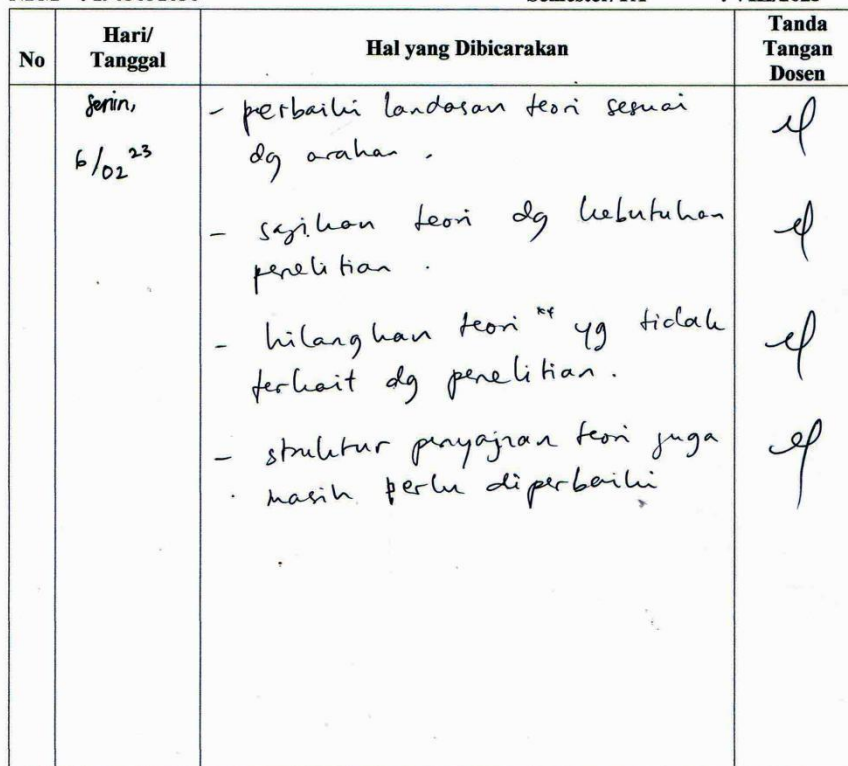 No
Hari/
Tanggal
Hal yang Dibicarakan
Tanda
Tangan
Dosen
Senin,
6/02 23
- perbaiki landasan teori sesuai
dg arahan.
- sajikan teori dg kebutuhan
penelitian.
- hilangkan teori yg tidak
terkait dg penelitian.
- struktur penyajian teori juga
masih perlu diperbaiki